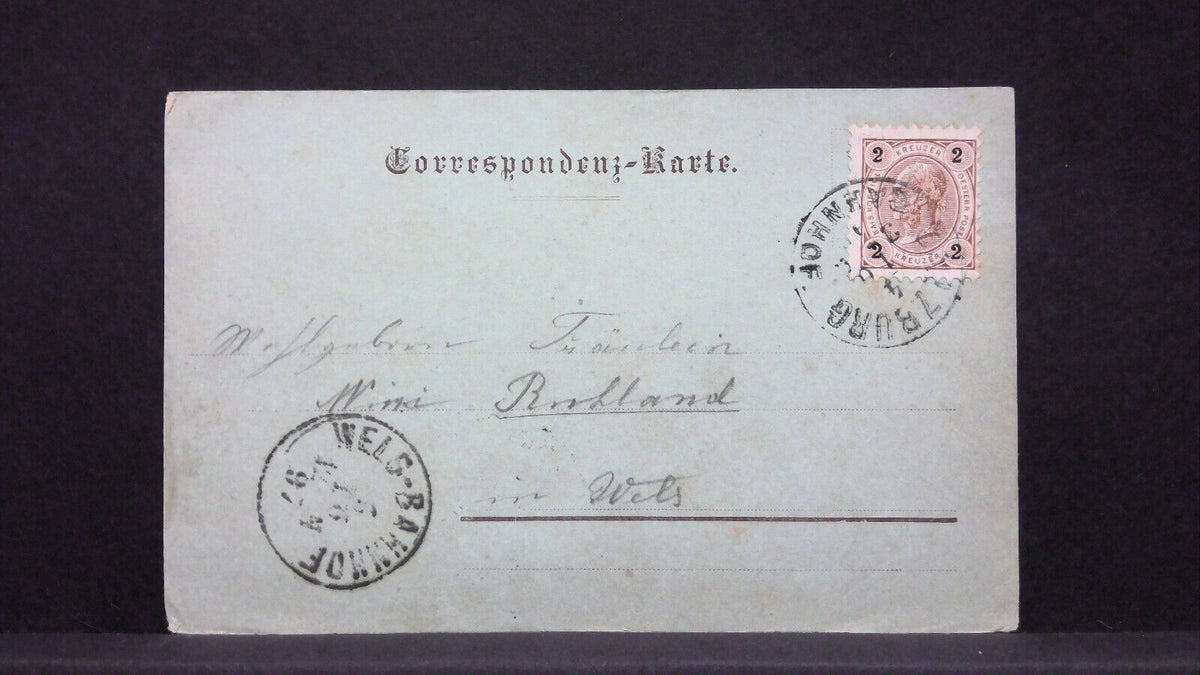 Correspondenz-Karte.
2 KREUZER 2
OESTERR. POST
2 KREUZER 2
BAHNHOF
ZBURG
Wohlgeborn Fräulein
Nini Ruhland
in Wels
WELS-BAHNHOF
97